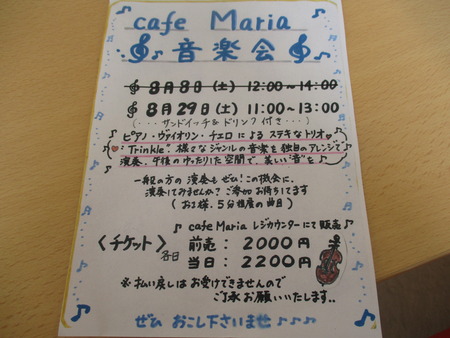 cafe Maria
音楽会
8月8日(土) 12:00〜14:00
8月29日(土) 11:00〜13:00
(・・・サンドイッチ&ドリンク付き・・・)
ピアノ・ヴァイオリン・チェロによるステキなトリオ♡
♡"Trinkle" 様々なジャンルの音楽を独自のアレンジで
演奏。午後のゆったりした空間で、美しい"音"を♪
一般の方の演奏もぜひ!この機会に、
演奏してみませんか?ご参加お待ちしてます
(お1人様、5分程度の曲目)
♪ cafe Maria レジカウンターにて販売♪
〈チケット〉各日
前売: 2000円
当日: 2200円
※払い戻しはお受けできませんので
ご了承お願いいたします..
ぜひ おこし下さいませ♪♪♪